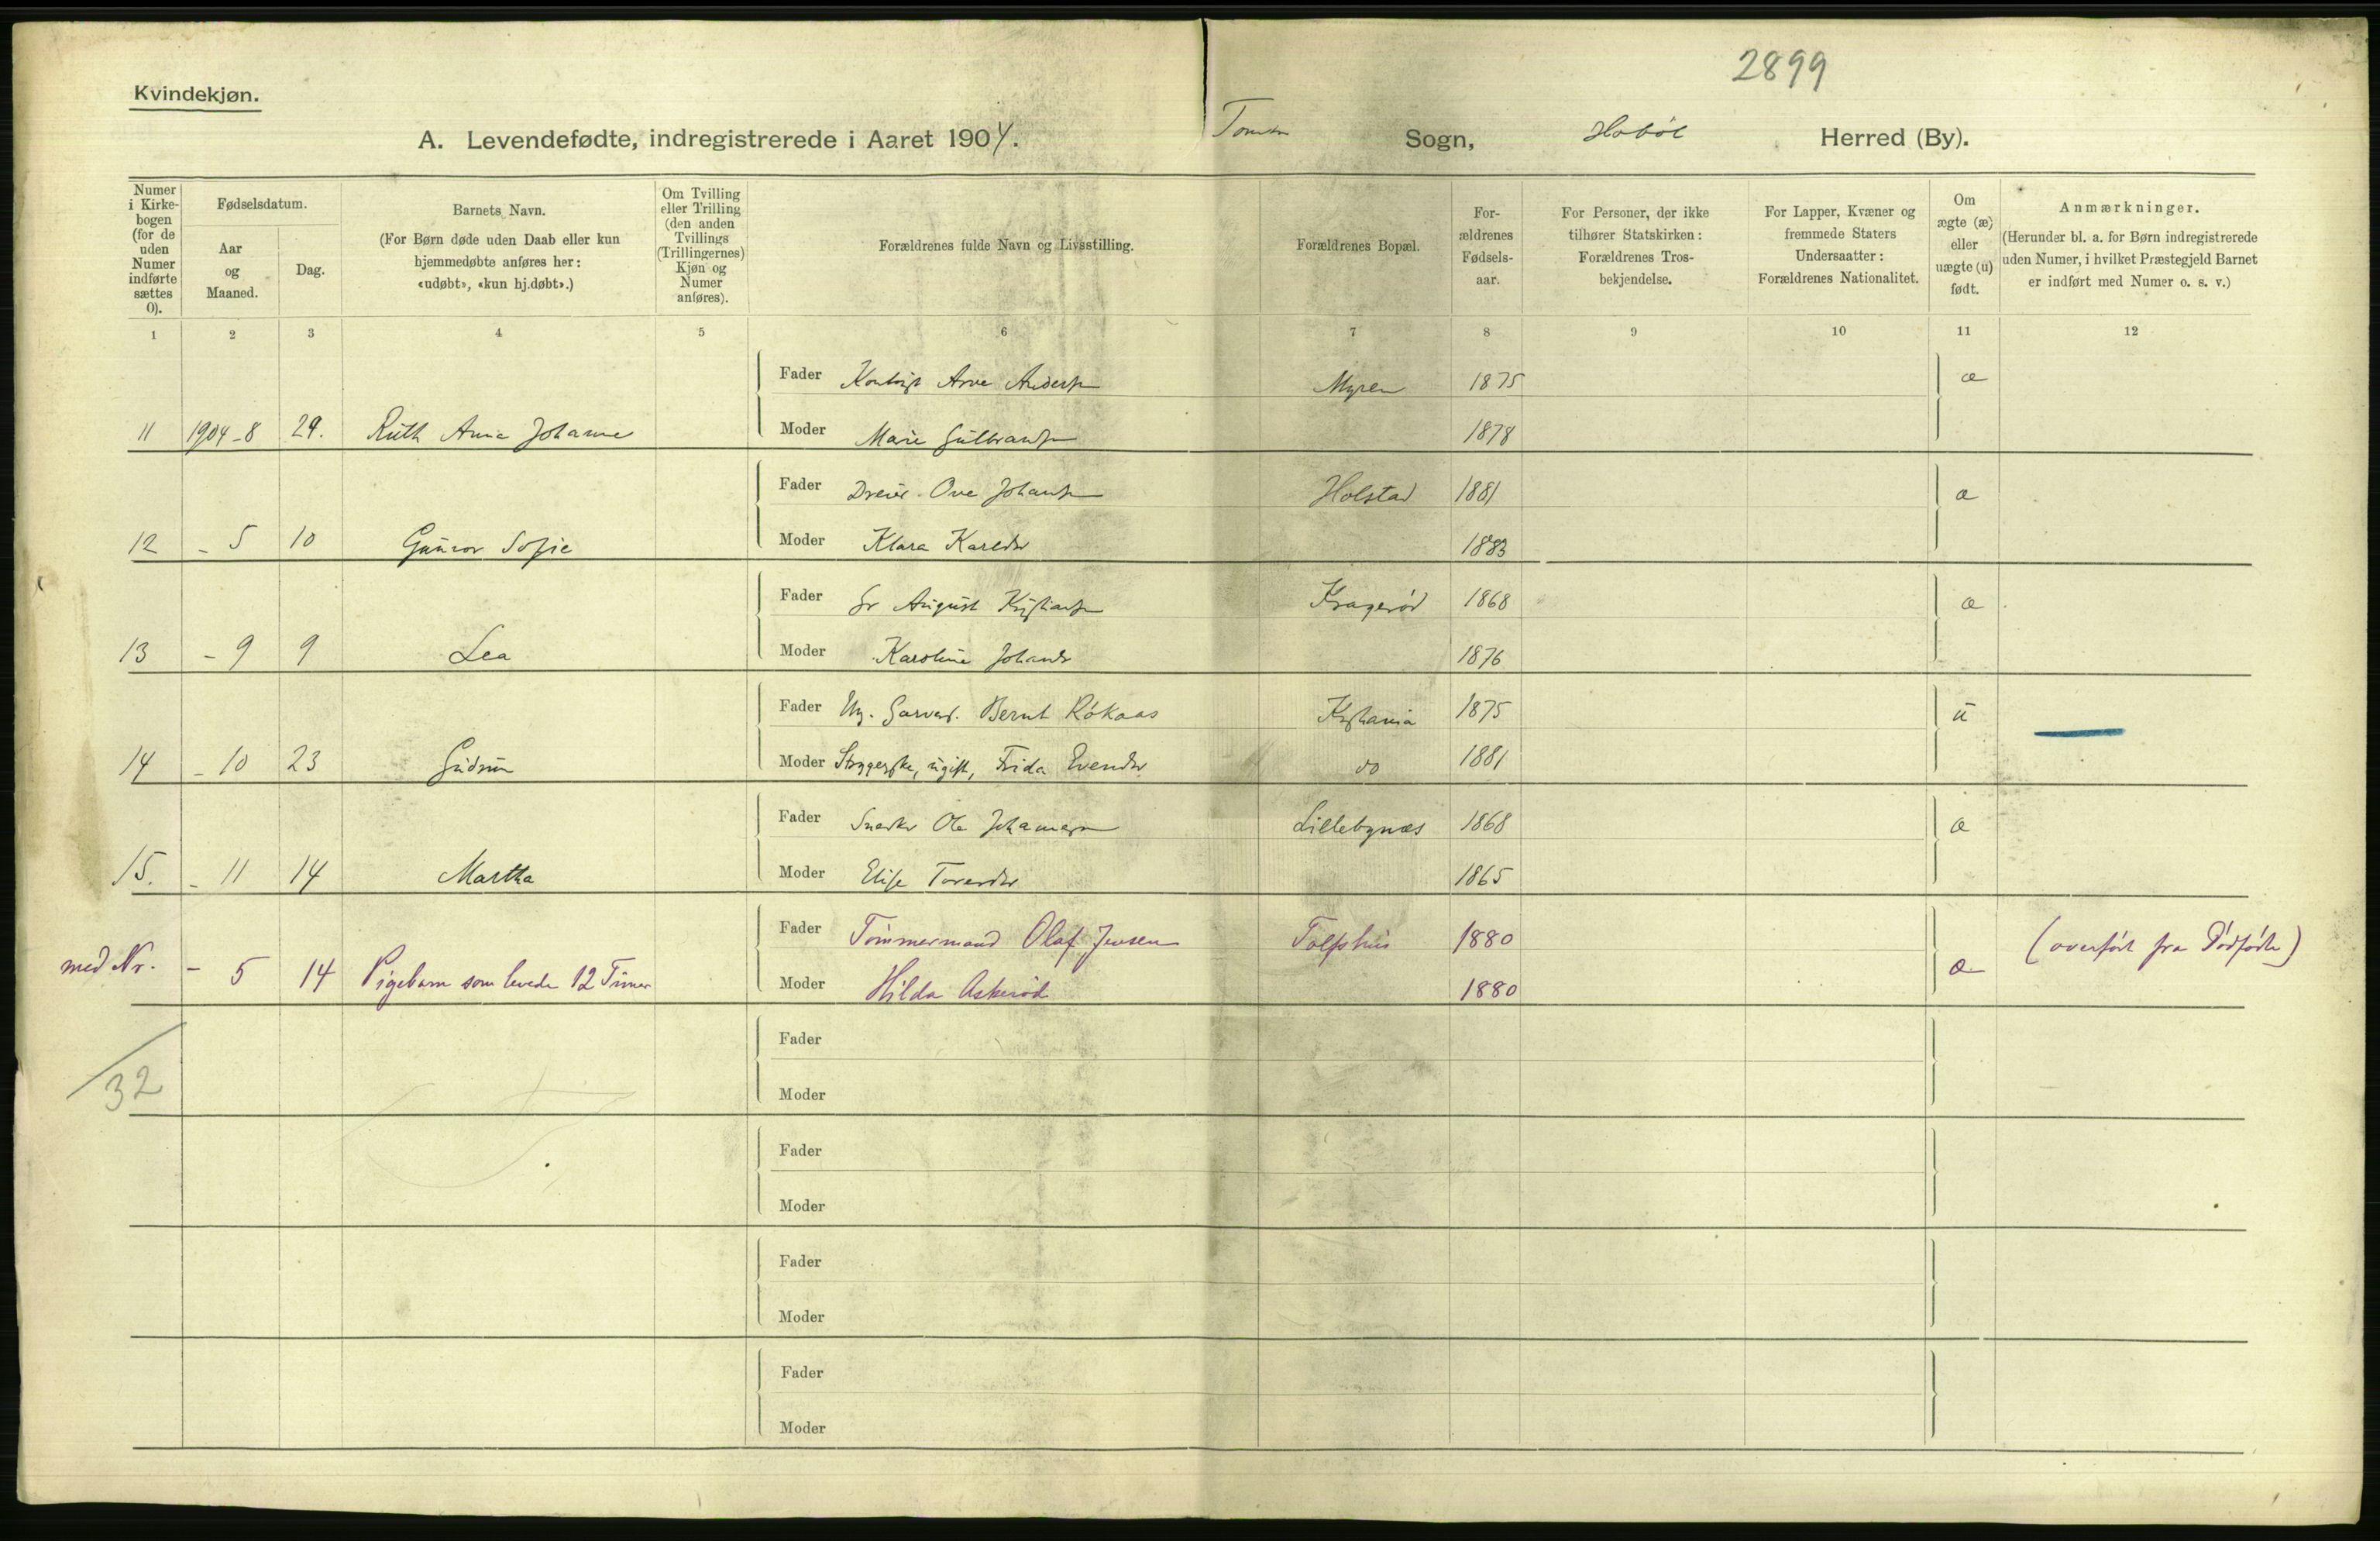 2899
Kvindekjøn.
A. Levendefødte, indregistrerede i Aaret 1904. Sogn, Hobøl Herred (By).
Numer i Kirkebogen (for de uden Numer indførte sættes 0).
Fødselsdatum.
Aar og Maaned.
Dag.
Barnets Navn.
(For Børn døde uden Daab eller kun hjemmedøbte anføres her: «udøbt», «kun hj.døbt».)
Om Tvilling eller Trilling (den anden Tvillings (Trillingernes) Kjøn og Numer anføres).
Forældrenes fulde Navn og Livsstilling.
Forældrenes Bopæl.
Forældrenes Fødselsaar.
For Personer, der ikke tilhører Statskirken: Forældrenes Trosbekjendelse.
For Lapper, Kvæner og fremmede Staters Undersaatter: Forældrenes Nationalitet.
Om ægte (æ) eller uægte (u) født.
Anmærkninger.
(Herunder bl. a. for Børn indregistrerede uden Numer, i hvilket Præstegjeld Barnet er indført med Numer o. s. v.)
1 2 3 4 5 6 7 8 9 10 11 12
Fader Arve Anders Myren 1875 æ
11 1904-8 29. Ruth Anna Johanne Moder Marie Gulbrands 1878
Fader Ove Johans Holstad 1881 æ
12 - 5 10 Gunvor Sofie Moder Klara Karlsdr 1883
Fader August Kristians Kragerød 1868 æ
13 - 9 9 Lea Moder Karoline Johansdr 1876
Fader Ug. Garvers. Bernt Røkaas Kristiania 1875 u
14 - 10 23 Gudrun Moder Strygerske, ugift, Frida Evensdr do 1881
Fader Snedker Ole Johannesen Lillebynæs 1868 æ
15. - 11 14 Martha Moder Elise 1865
Fader Tømmermand Olaf Jensen 1880 (overført fra Dødfødte)
med Nr. - 5 14 Pigebarn som levede 12 Timer Moder Hilda Askerød 1880 æ
Fader
32 Moder
Fader
Moder
Fader
Moder
Fader
Moder